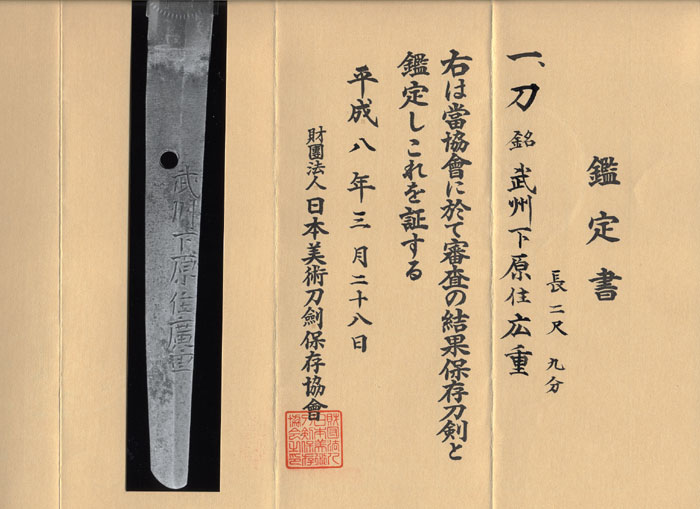 鑑定書
一、刀 銘 武州下原住広重
長二尺 九分
右は當協會に於て審査の結果保存刀剣と
鑑定しこれを証する
平成八年三月二十八日
財團法人日本美術刀劍保存協會
武州下原住廣重